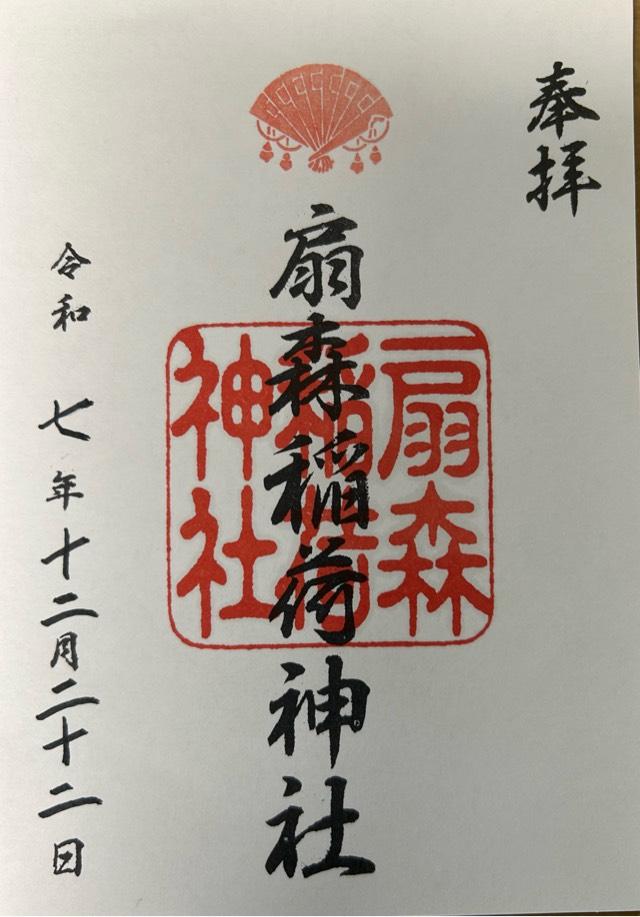 奉拝
扇森稲荷神社
扇森
稲荷
神社
令和 七年十二月二十二日